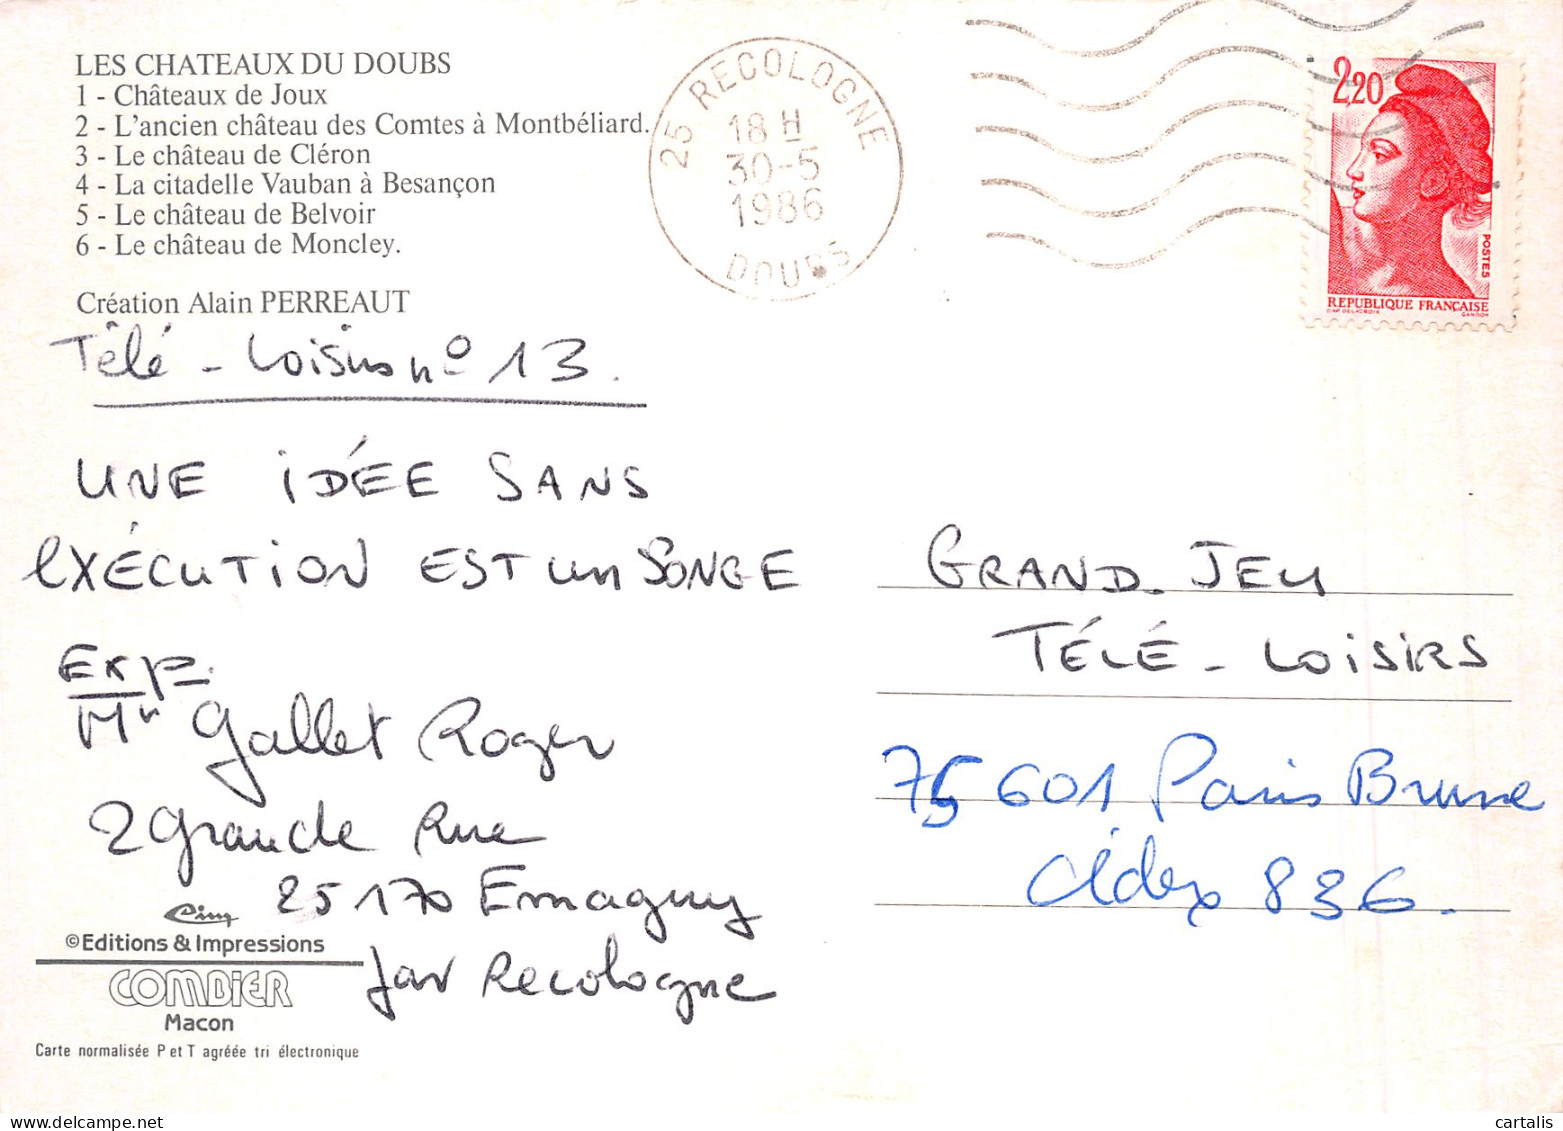 LES CHATEAUX DU DOUBS
1 - Châteaux de Joux
2 - L'ancien château des Comtes à Montbéliard.
3 - Le château de Cléron
4 - La citadelle Vauban à Besançon
5 - Le château de Belvoir
6 - Le château de Moncley.
Création Alain PERREAUT
25 RECOLOGNE
18 H
30-5
1986
DOUBS
2,20
POSTES
REPUBLIQUE FRANÇAISE
D'AP. DELACROIX GANDON
Télé - Loisirs n° 13.
UNE IDÉE SANS
EXÉCUTION EST un SONGE
Exp.
Mr Gallet Roger
2 Grande Rue
25170 Emagny
par Recologne
GRAND JEU
TÉLÉ - LOISIRS
75601 Paris Brune
Cidex 836.
Cim
©Editions & Impressions
COMBIER
Macon
Carte normalisée P et T agréée tri électronique
cartalis